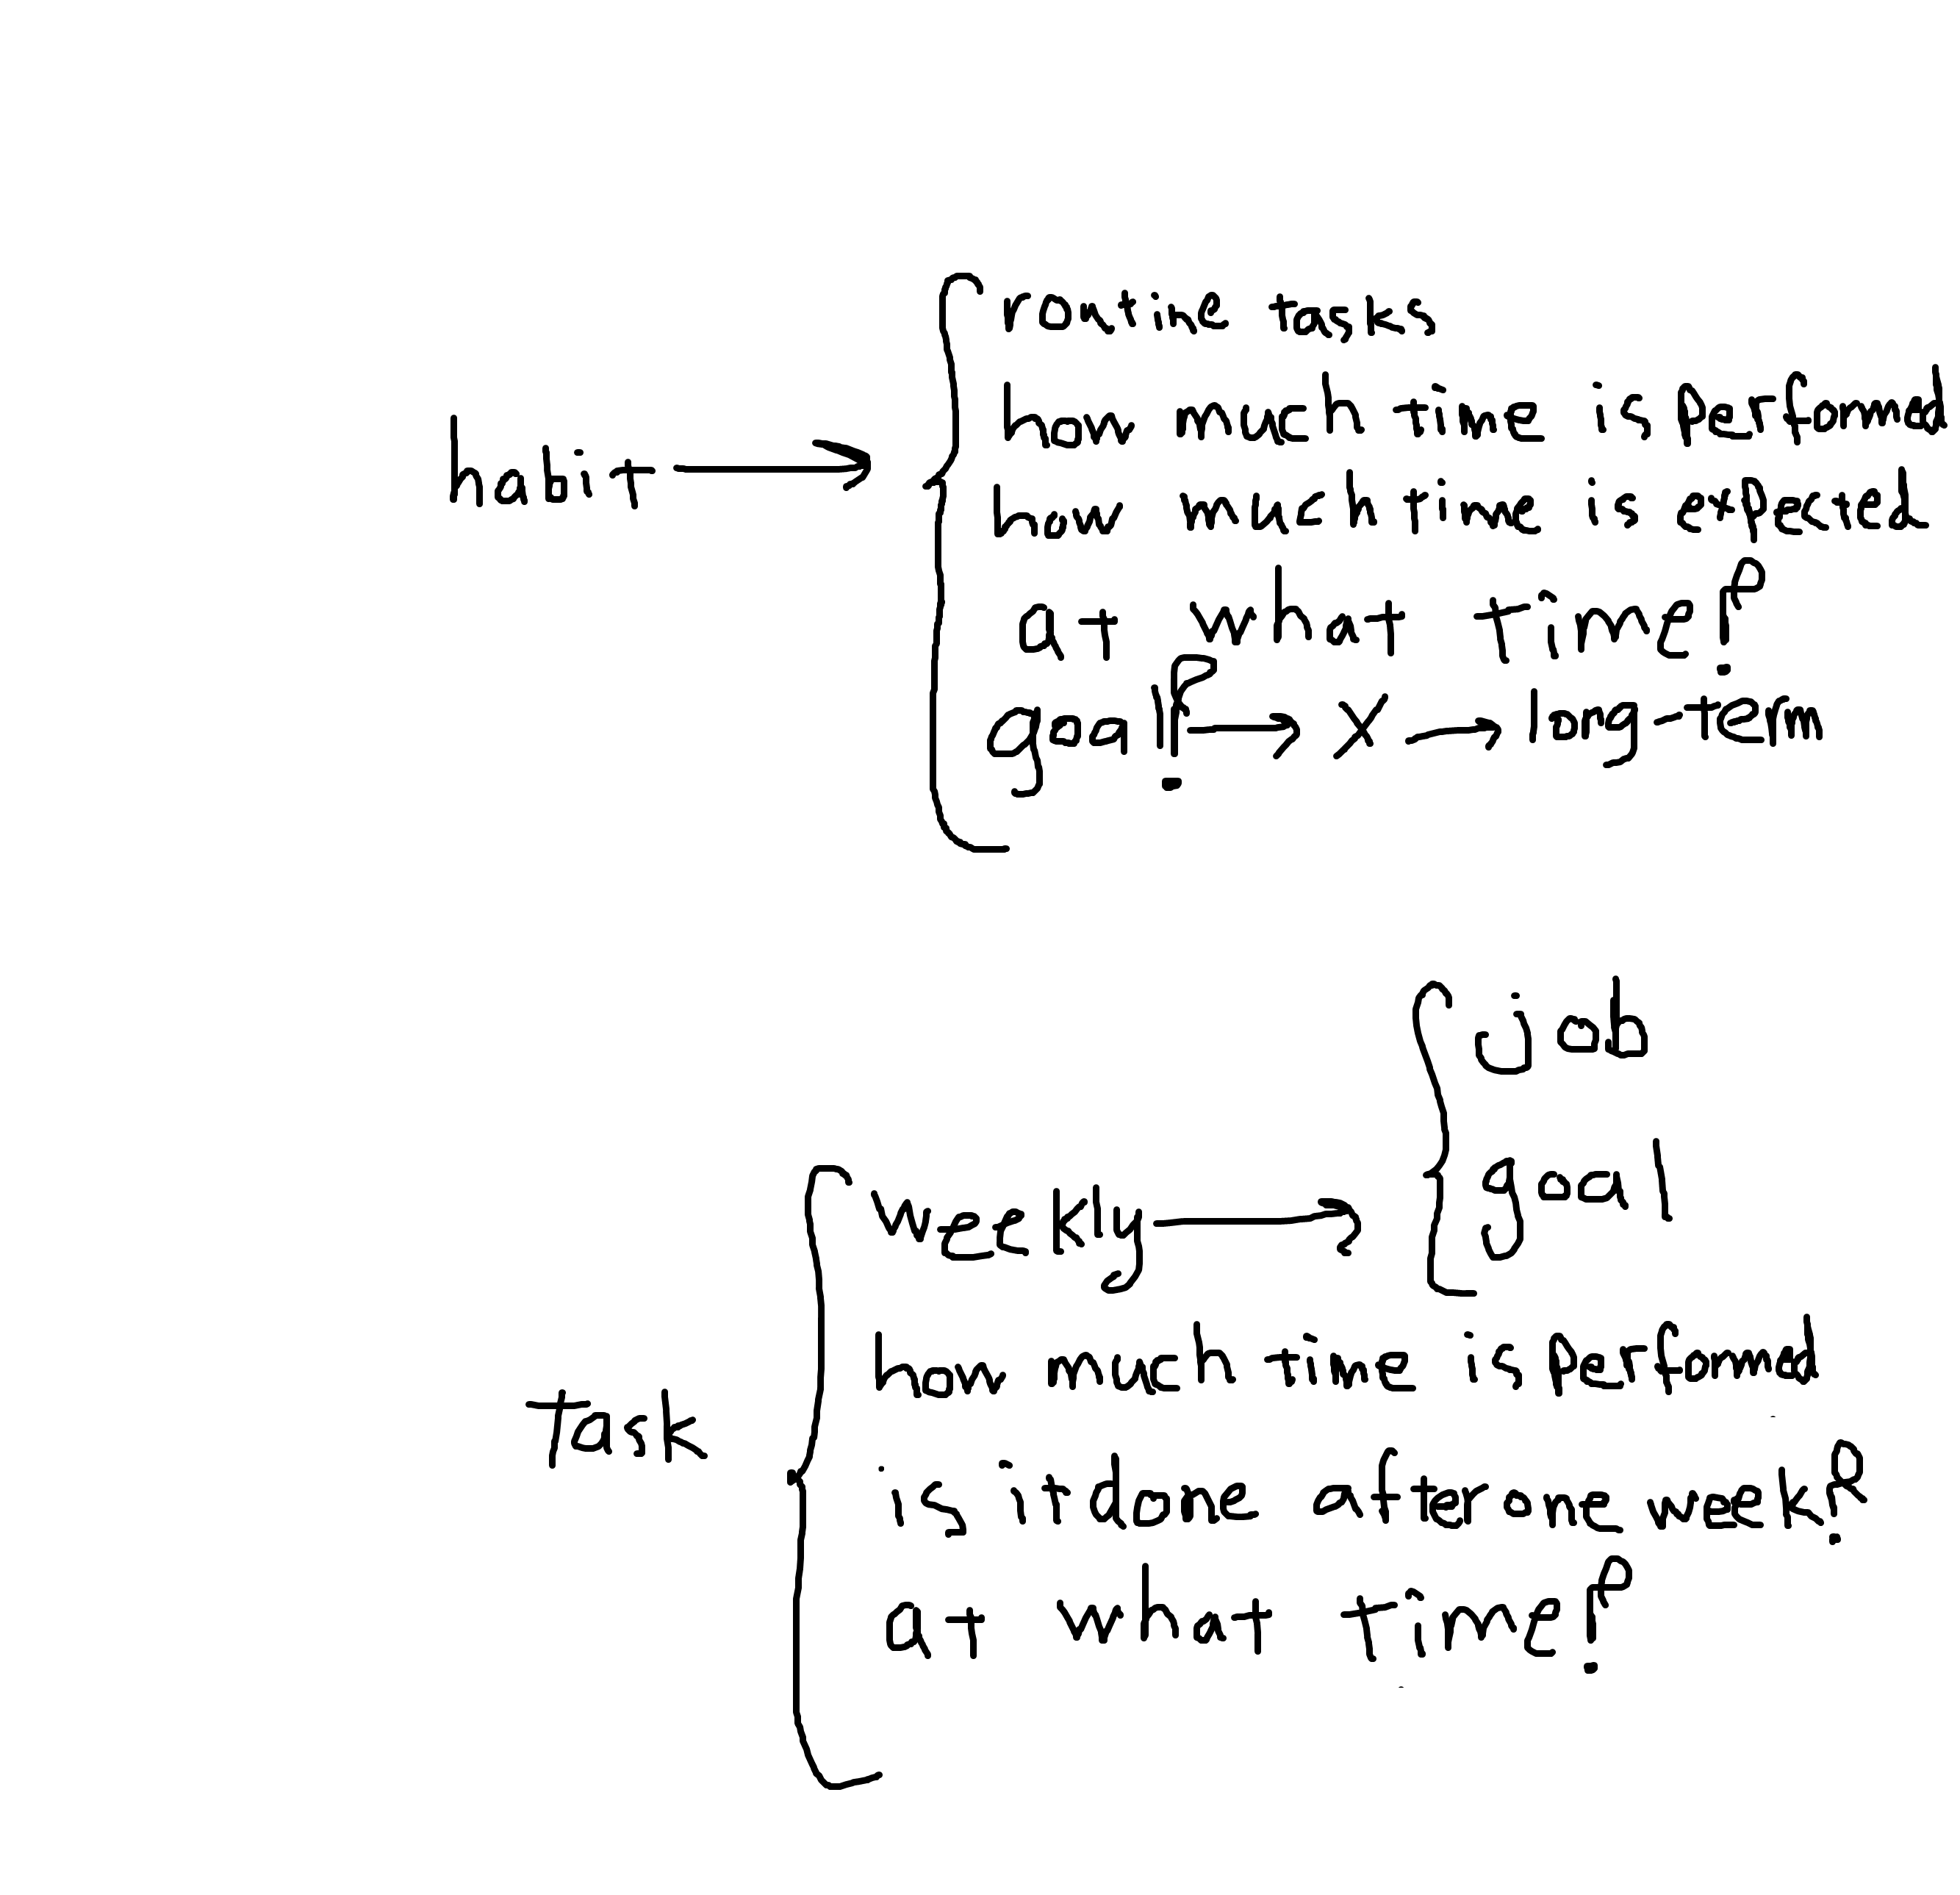 routine tasks
how much time is performed
habit → how much time is expected
at what time?
goal? → x → long-term
job
goal
weekly →
how much time is performed
Task
is it done after one week?
at what time?